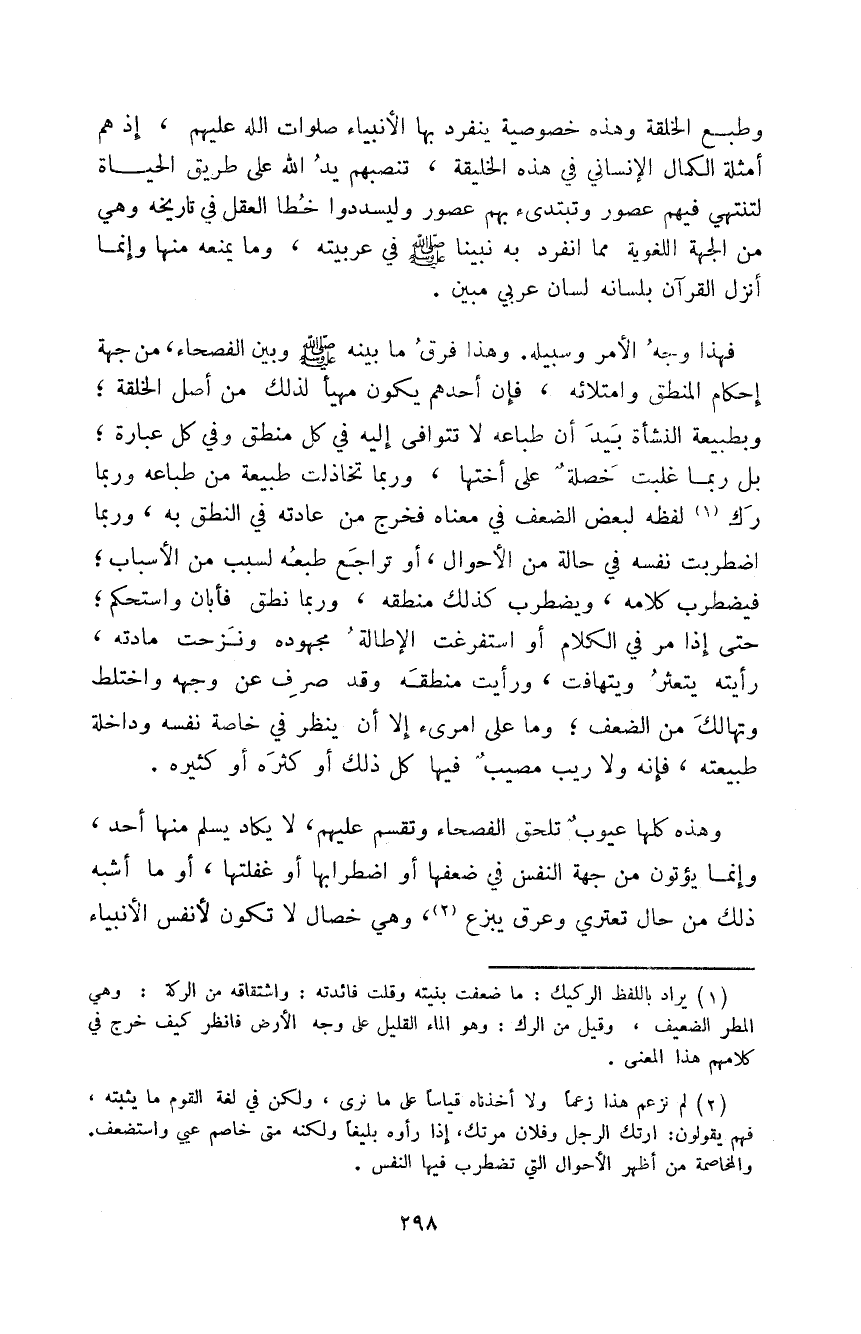 وطبـــع الخلقة وهذه خصوصية ينفرد بها الأنبياء صلوات الله عليهم ، إذ هم
أمثلة الكمال الإنساني في هذه الخليقة ، تنصبهم يدُ الله على طريق الحيـــــاة
لتنتهي فيهم عصور وتبتدىء بهم عصور وليسددوا خُطا العقل في تاريخه وهي
من الجهة اللغوية مما انفرد به نبينا ﷺ في عربيته ، وما يمنعه منها وإنمـا
أنزل القرآن بلسانه لسان عربي مبين .
فهذا وجهُ الأمر وسبيله. وهذا فرقُ ما بينه ﷺ وبين الفصحاء، من جهة
إحكام المنطق وامتلائه ، فإن أحدهم يكون مهيأ لذلك من أصل الخلقة ؛
وبطبيعة النشأة بَيدَ أن طباعه لا تتوافى إليه في كل منطق وفي كل عبارة ؛
بل ربمـا غلبت خَصلةٌ على أختها ، وربما تخاذلت طبيعة من طباعه وربما
ركَ (١) لفظه لبعض الضعف في معناه فخرج من عادته في النطق به ، وربما
اضطربت نفسه في حالة من الأحوال ، أو تراجَع طبعُه لسبب من الأسباب ؛
فيضطرب كلامه ، ويضطرب كذلك منطقه ، وربما نطق فأبان واستحكم ؛
حتى إذا مر في الكلام أو استفرغت الإطالةُ مجهوده ونَزحت مادته ،
رأيته يتعثرُ ويتهافت ، ورأيت منطقَه وقد صرِف عن وجهه واختلط
وتهالكَ من الضعف ؛ وما على امرىء إلا أن ينظر في خاصة نفسه وداخلة
طبيعته ، فإنه ولا ريب مصيبٌ فيها كل ذلك أو كثرَه أو كثيره .
وهذه كلها عيوبٌ تلحق الفصحاء وتقسم عليهم، لا يكاد يسلم منها أحد ،
وإنمـا يؤتون من جهة النفس في ضعفها أو اضطرابها أو غفلتها ، أو ما أشبه
ذلك من حال تعتري وعرق ينزع (٢)، وهي خصال لا تكون لأنفس الأنبياء
(١) يراد باللفظ الركيك : ما ضعفت بنيته وقلت فائدته : واشتقاقه من الركة : وهي
المطر الضعيف ، وقيل من الرك : وهو الماء القليل على وجه الأرض فانظر كيف خرج في
كلامهم هذا المعنى .
(٢) لم نزعم هذا زعماً ولا أخذناه قياساً على ما نرى ، ولكن في لغة القوم ما يثبته ،
فهم يقولون: ارتك الرجل وفلان مرتك، إذا رأوه بليغاً ولكنه متى خاصم عيي واستضعف.
والمخاصمة من أظهر الأحوال التي تضطرب فيها النفس .
٢٩٨